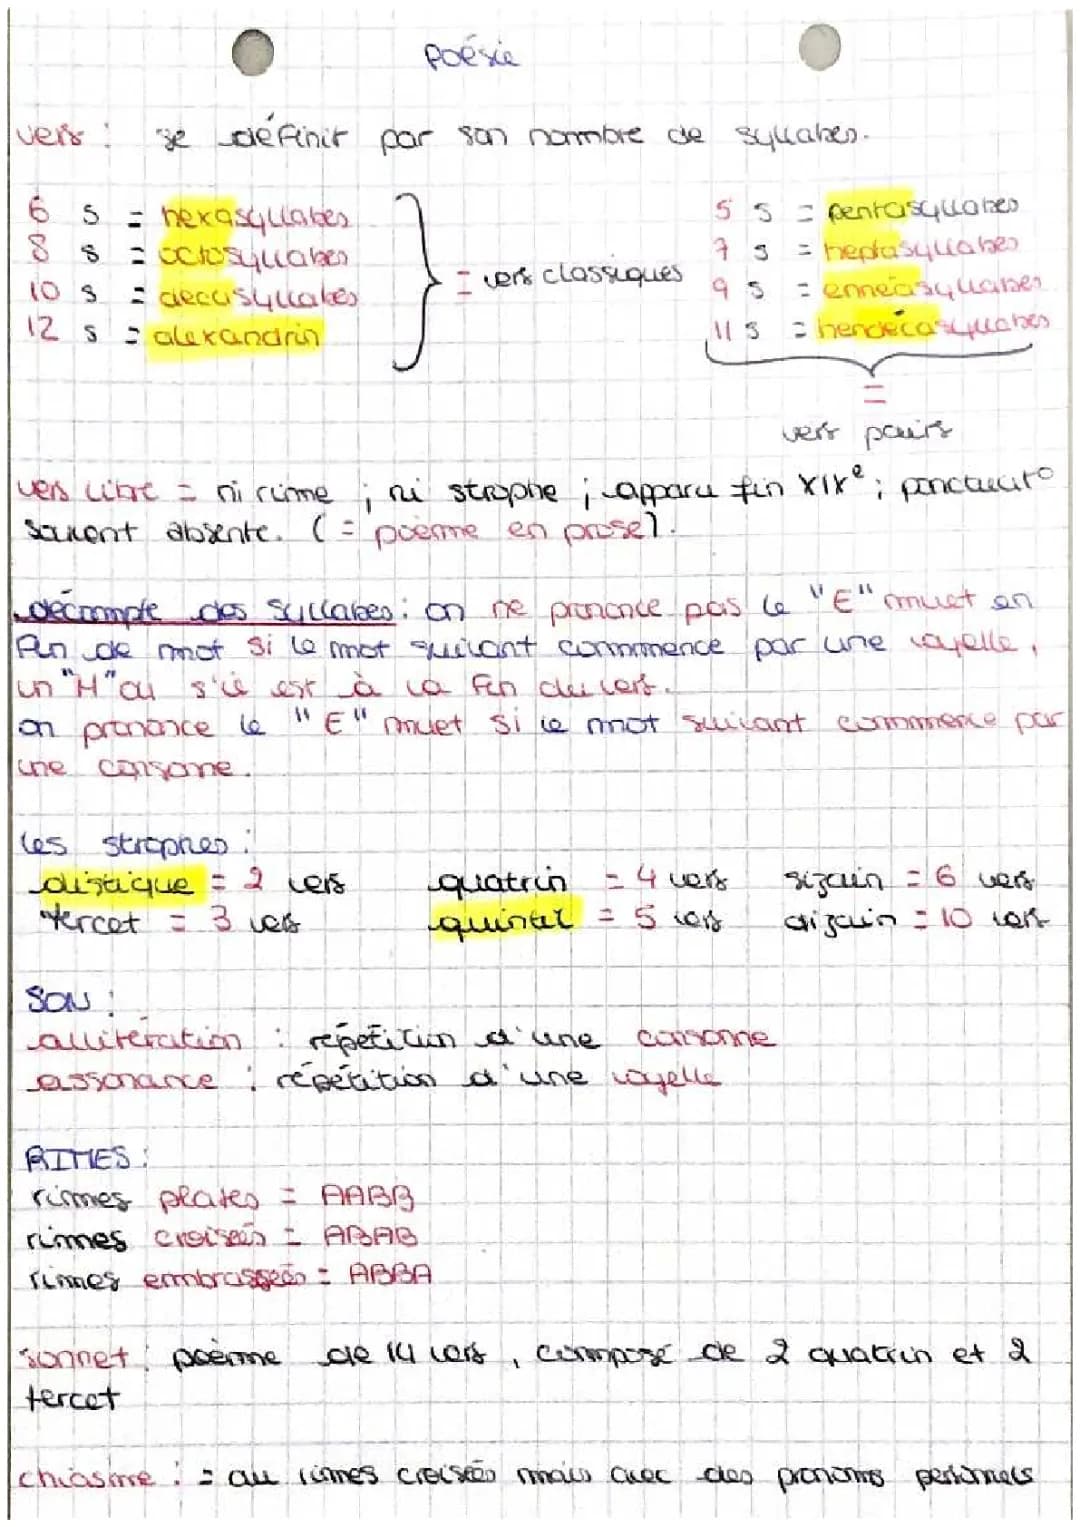 Poésie
vers : se définir par son nombre de syllabes.
6 s = hexasyllabes
8 s = octosyllabes
10 s = décasyllabes
12 s = alexandrin
= vers classiques
5 s = pentasyllabes
7 s = heptasyllabes
9 s = ennéasyllabes
11 s = hendécasyllabes
=
vers pairs
vers libre = ni rime ; ni strophe ; apparu fin XIXe ; ponctuat°
souvent absente. (= poème en prose).
décompte des syllabes : on ne prononce pas le "E" muet en
fin de mot si le mot suivant commence par une voyelle,
un "H" ou s'il est à la fin du vers.
on prononce le "E" muet si le mot suivant commence par
une consonne.
les strophes :
distique = 2 vers quatrin = 4 vers sizain = 6 vers
tercet = 3 vers quintil = 5 vers dizain = 10 vers
SON :
allitération : répétition d'une consonne
assonance : répétition d'une voyelle
RIMES :
rimes plates = AABB
rimes croisées = ABAB
rimes embrassées = ABBA
sonnet : poème de 14 vers, composé de 2 quatrin et 2
tercet
chiasme : = au rimes croisées mais avec des pronoms personnels